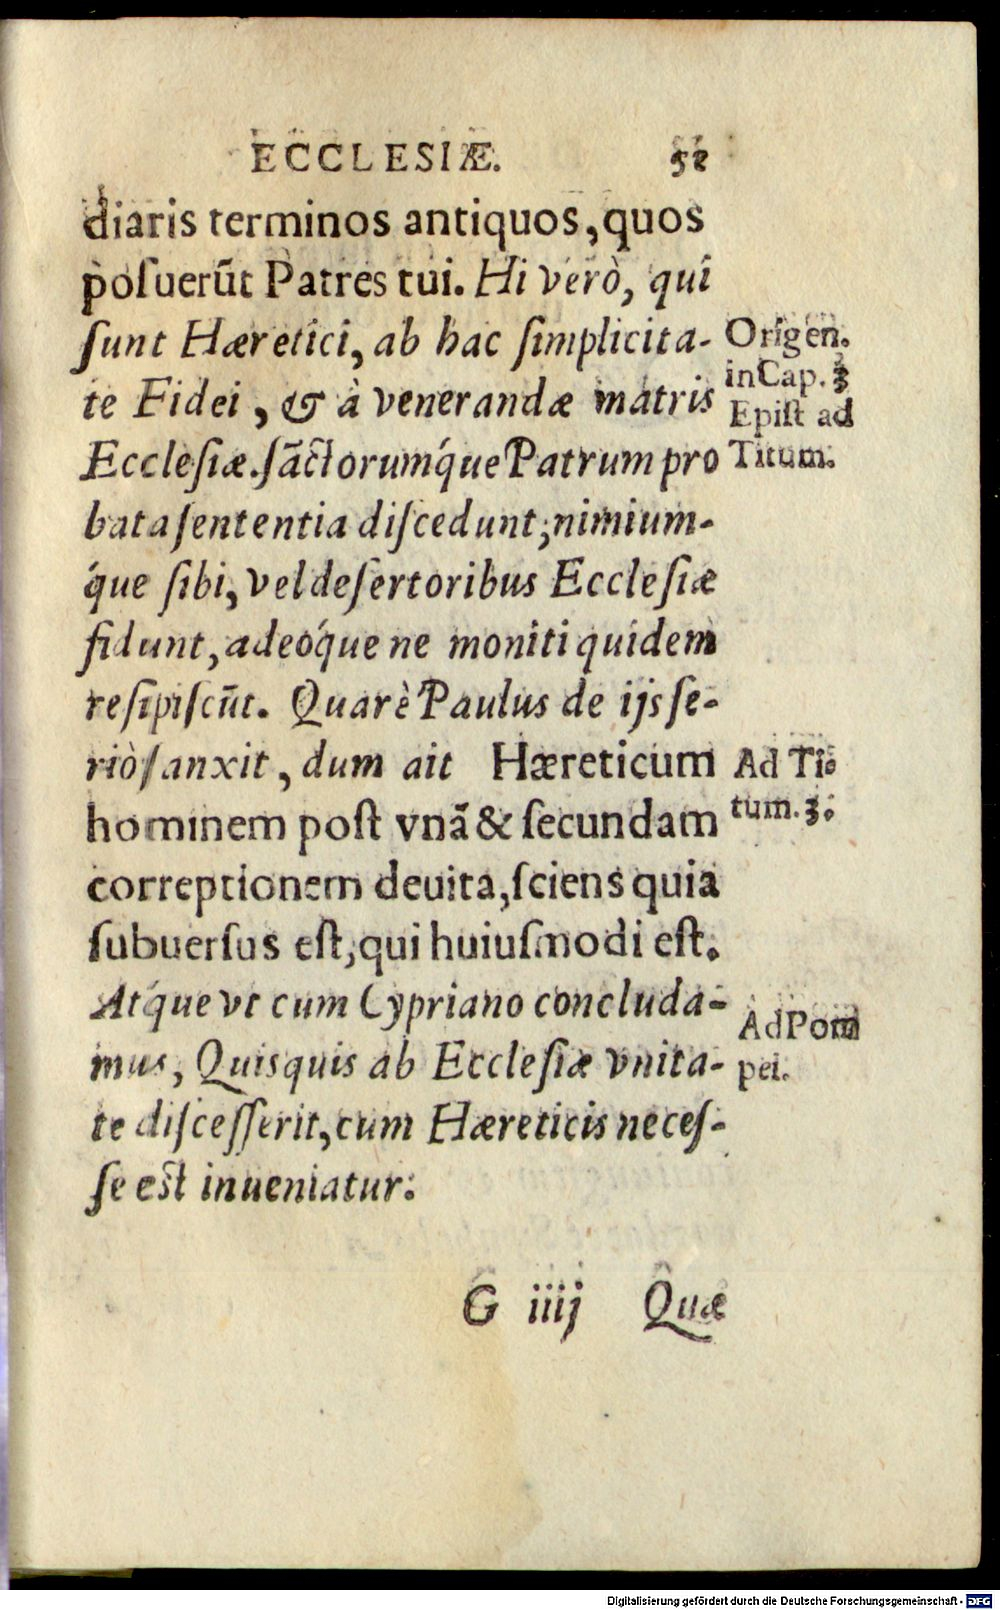 ECCLESIÆ. 52
diaris terminos antiquos, quos
posuerūt Patres tui. Hi verò, qui
ſunt Hæretici, ab hac ſimplicita-
te Fidei, & à venerandæ matris
Eccleſiæ. ſāctorumq́ue Patrum pro
bata ſententia diſcedunt, nimium-
q́ue ſibi, vel deſertoribus Eccleſiæ
fidunt, adeoq́ue ne moniti quidem
reſipiſcūt. Quarè Paulus de ijs ſe-
riò ſanxit, dum ait Hæreticum
hominem poſt vnā & ſecundam
correptionem deuita, ſciens quia
ſubuerſus eſt, qui huiuſmodi eſt.
Atq́ue vt cum Cypriano concluda-
mus, Quisquis ab Eccleſiæ vnita-
te diſceſſerit, cum Hæreticis neceſ-
ſe eſt inueniatur.
Origen.
in Cap. 3
Epiſt ad
Titum.
Ad Ti-
tum. 3.
Ad Pom
pei.
G iiij Quæ
Digitalisierung gefördert durch die Deutsche Forschungsgemeinschaft - DFG